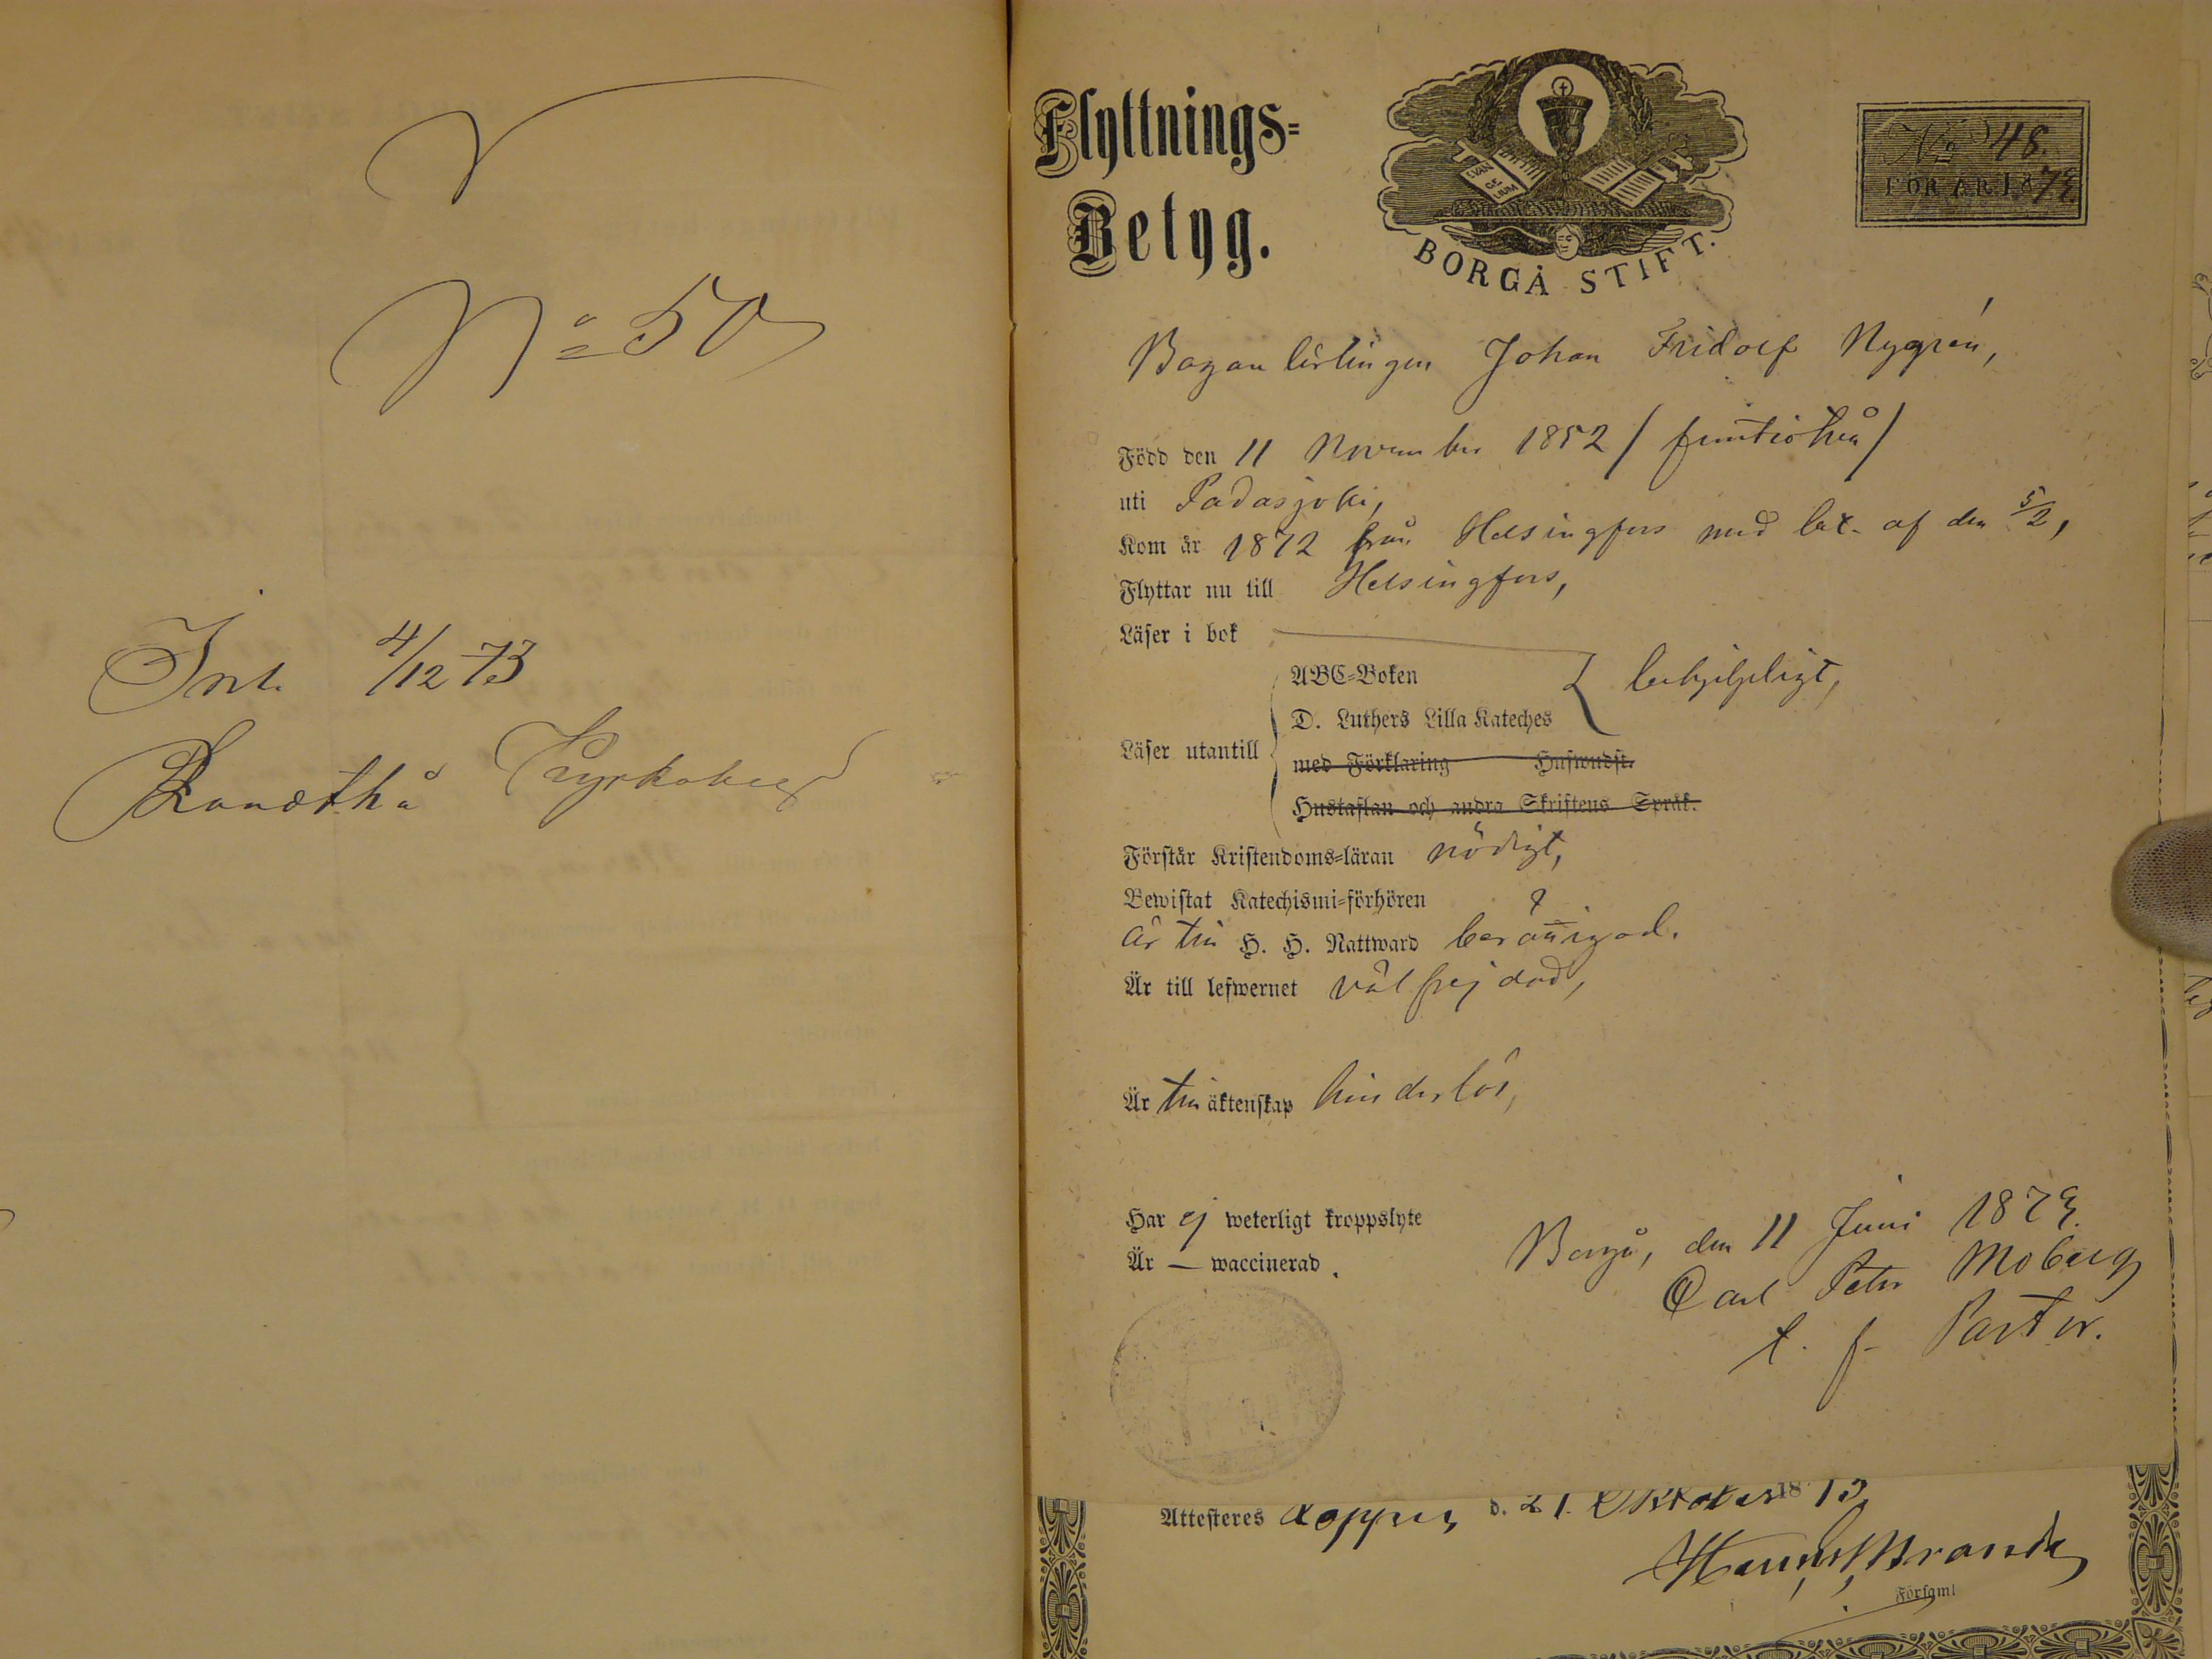 No 50
Ink. 4/12 73
Kyrkoherd
Flyttnings-
Betyg.
EVANGELIUM
BORGÅ STIFT.
No 48.
FÖR ÅR 1873
Johan Fridolf Nygrén,
Född den 11 November 1852 / femtiotvå /
uti Padasjoki,
Kom år 1872 från Helsingfors med bet. af den 5/2,
Flyttar nu till Helsingfors,
Läser i bok
ABC-Boken
D. Luthers Lilla Kateches
behjelpligt,
Läser utantill
med Förklaring Huswudst.
Hustaflan och andra Skriftens Språk.
Förstår Kristendoms-läran nödigt,
Bewistat Katechismi-förhören ?
är till H. H. Nattward berättigad.
Är till lefwernet välfrejdad,
Är till äktenskap hinderlös,
Har ej weterligt kroppslyte
Är — waccinerad.
Borgå, den 11 Juni 1873.
Carl Peter Moberg
t. f. Pastor.
Attesteres d. 21. Oktober 1873
Församl